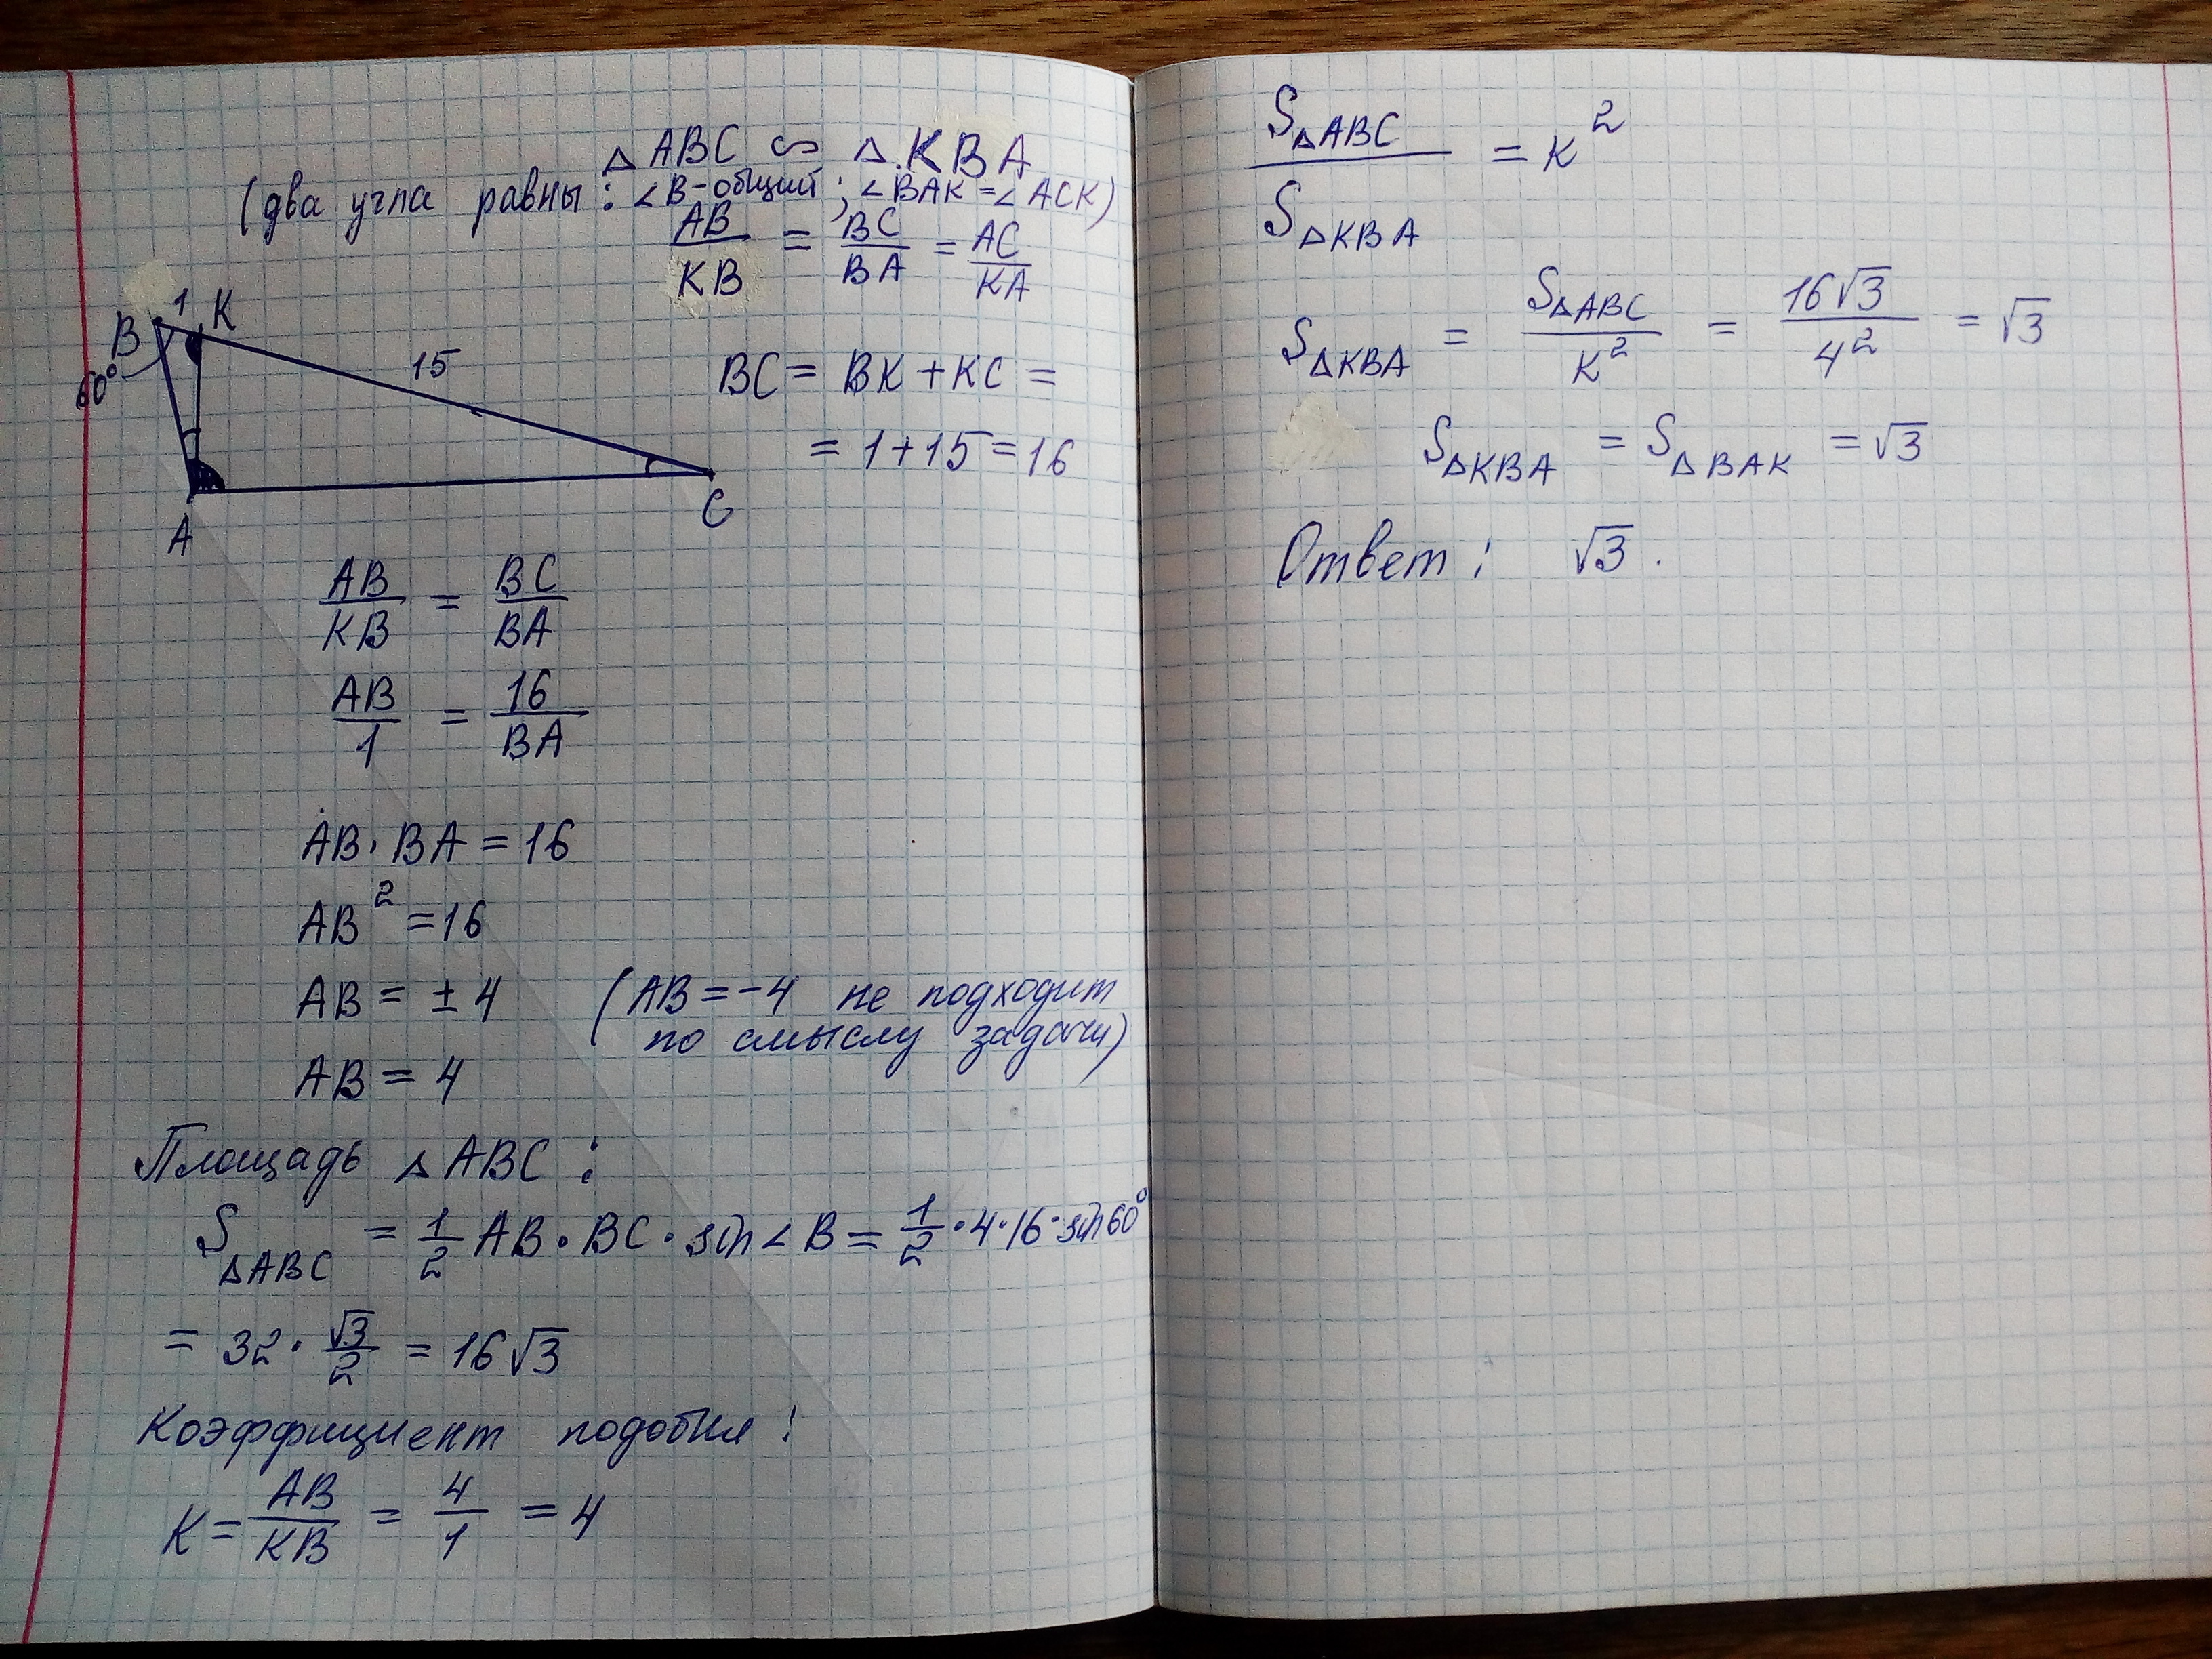 △ABC ∽ △KBA
(два угла равны: ∠B-общий; ∠BAK=∠ACK)
AB/KB = BC/BA = AC/KA
B 1 K
60°
15
A
C
BC = BK + KC =
= 1 + 15 = 16
AB/KB = BC/BA
AB/1 = 16/BA
AB · BA = 16
AB² = 16
AB = ± 4 (AB = -4 не подходит
по смыслу задачи)
AB = 4
Площадь △ABC :
S△ABC = 1/2 AB · BC · sin∠B = 1/2 · 4 · 16 · sin60°
= 32 · √3/2 = 16√3
Коэффициент подобия :
K = AB/KB = 4/1 = 4
S△ABC/S△KBA = K²
S△KBA = S△ABC/K² = 16√3/4² = √3
S△KBA = S△BAK = √3
Ответ : √3 .